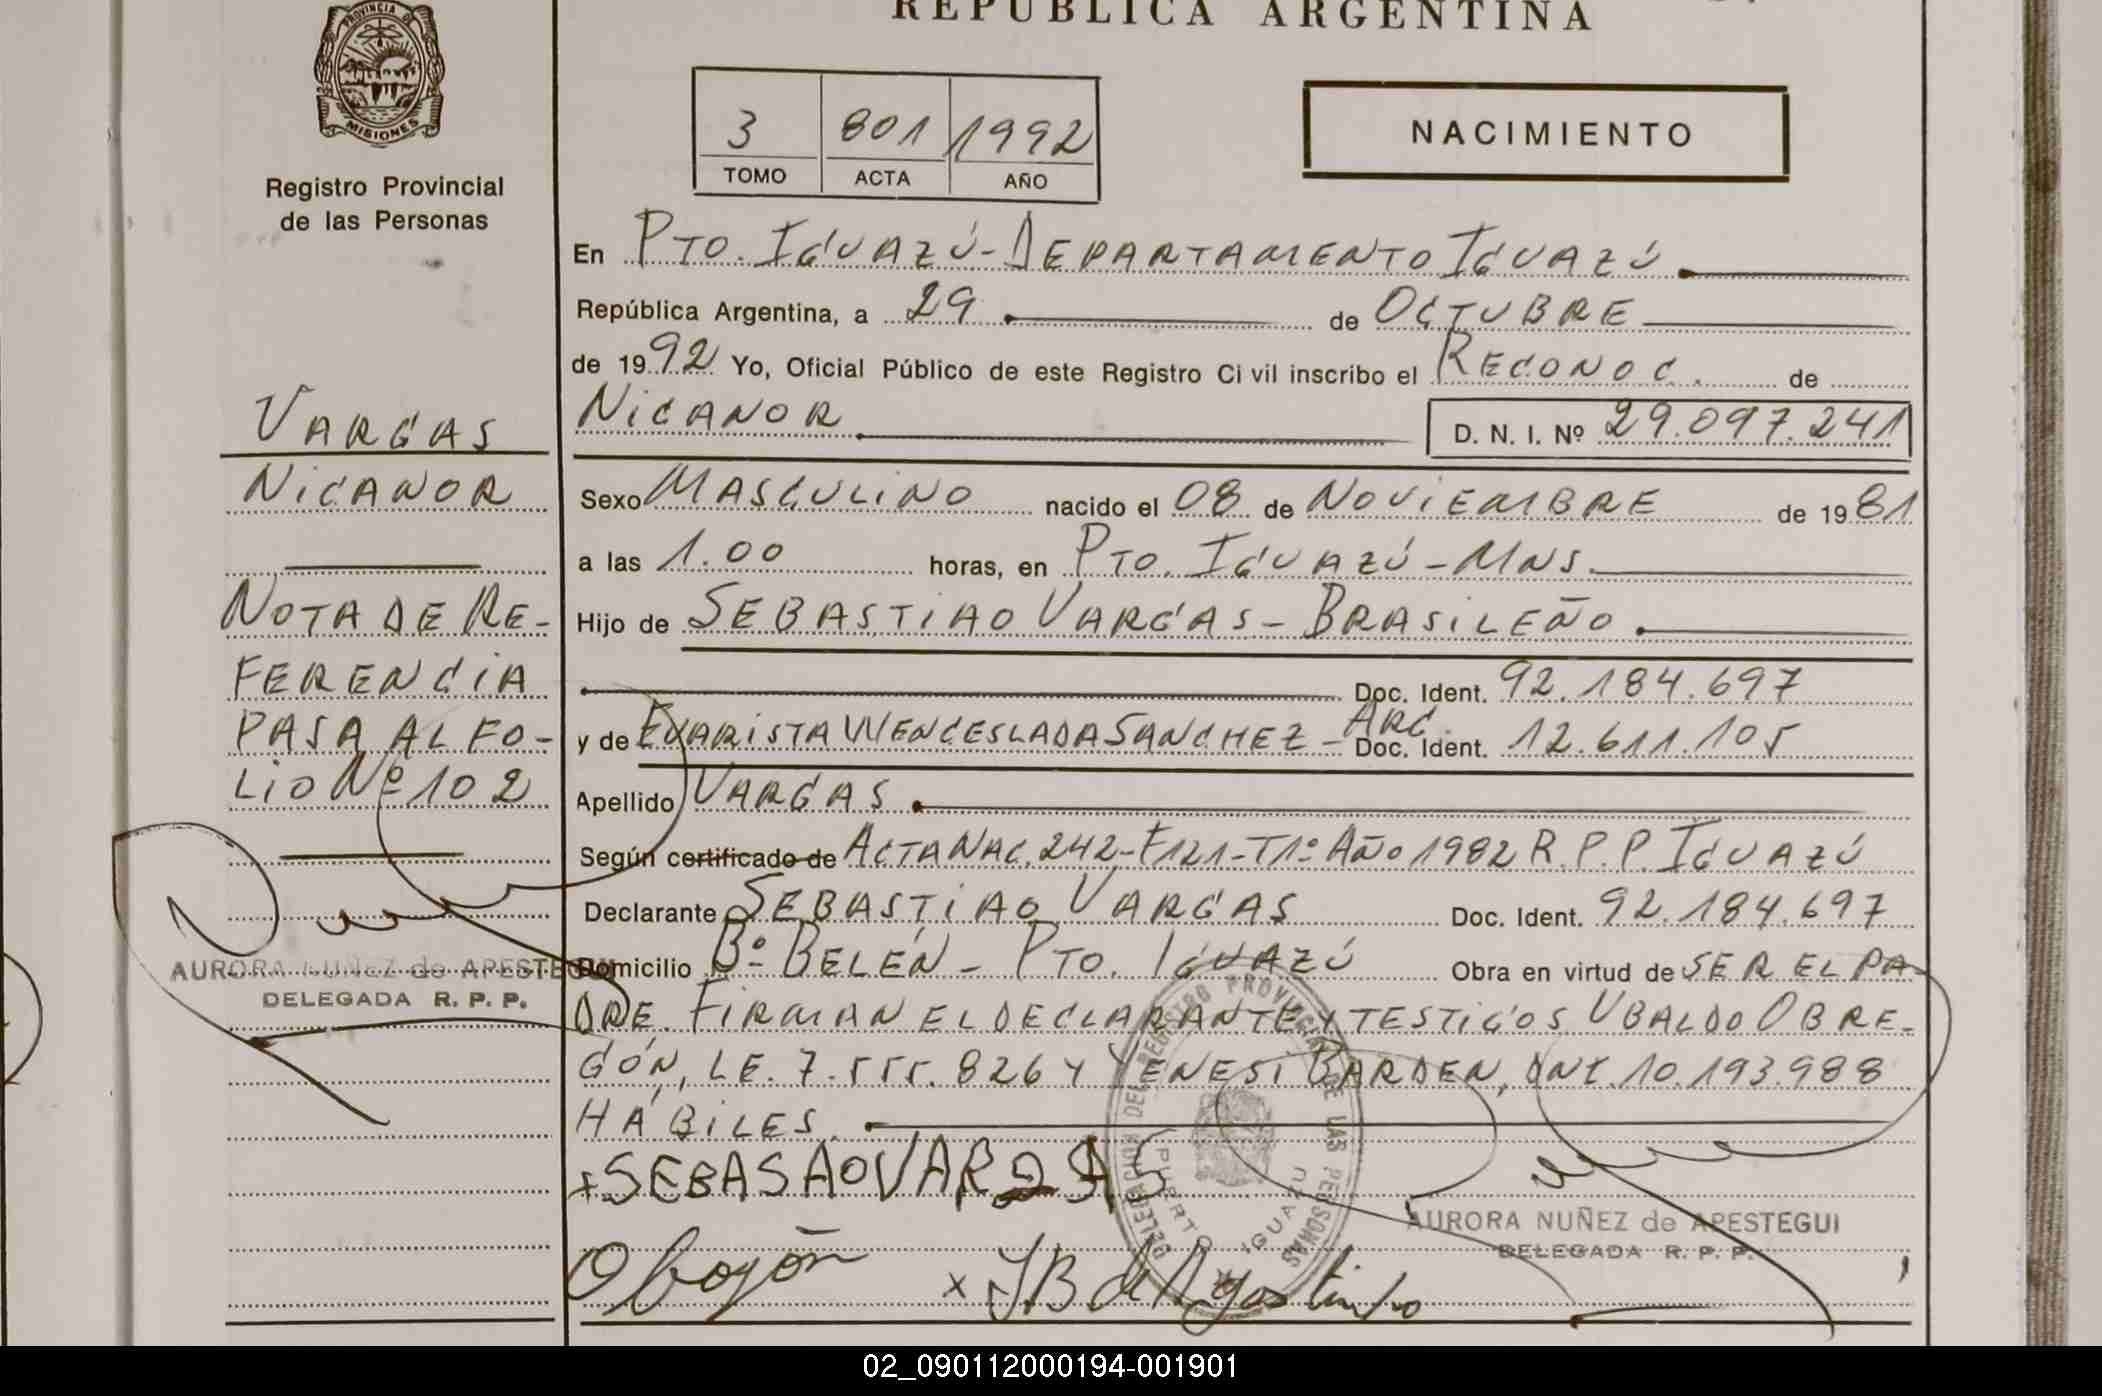 REPUBLICA ARGENTINA
PROVINCIA DE
MISIONES
Registro Provincial
de las Personas
3 801 1992
TOMO ACTA AÑO
NACIMIENTO
En PTO. IGUAZÚ - DEPARTAMENTO IGUAZÚ
República Argentina, a 29 de OCTUBRE
de 1992 Yo, Oficial Público de este Registro Civil inscribo el RECONOC. de
NICANOR D. N. I. Nº 29.097.241
Sexo MASCULINO nacido el 08 de NOVIEMBRE de 1981
a las 1.00 horas, en PTO. IGUAZÚ - MNS.
Hijo de SEBASTIAO VARGAS - BRASILEÑO
Doc. Ident. 92.184.697
y de EVARISTA WENCESLADA SANCHEZ - ARG. Doc. Ident. 12.611.105
Apellido VARGAS
Según certificado de ACTA NAC. 242 - F121 - T1º AÑO 1982 R.P.P IGUAZÚ
Declarante SEBASTIAO VARGAS Doc. Ident. 92.184.697
Domicilio Bº BELÉN - PTO. IGUAZÚ Obra en virtud de SER EL PA-
DRE. FIRMAN EL DECLARANTE Y TESTIGOS UBALDO OBRE-
GÓN, LE. 7.555.826 Y YENESI BARDEN, DNI. 10.193.988
HÁBILES.
+ SEBASAO VARGAS
VARGAS
NICANOR
NOTA DE RE-
FERENCIA
PASA AL FO-
LIO Nº 102
AURORA NUÑEZ de APESTEGUI
DELEGADA R. P. P.
DELEGACION DEL REGISTRO PROVINCIAL DE LAS PERSONAS
PUERTO IGUAZU
AURORA NUÑEZ de APESTEGUI
DELEGADA R. P. P.
02_090112000194-001901